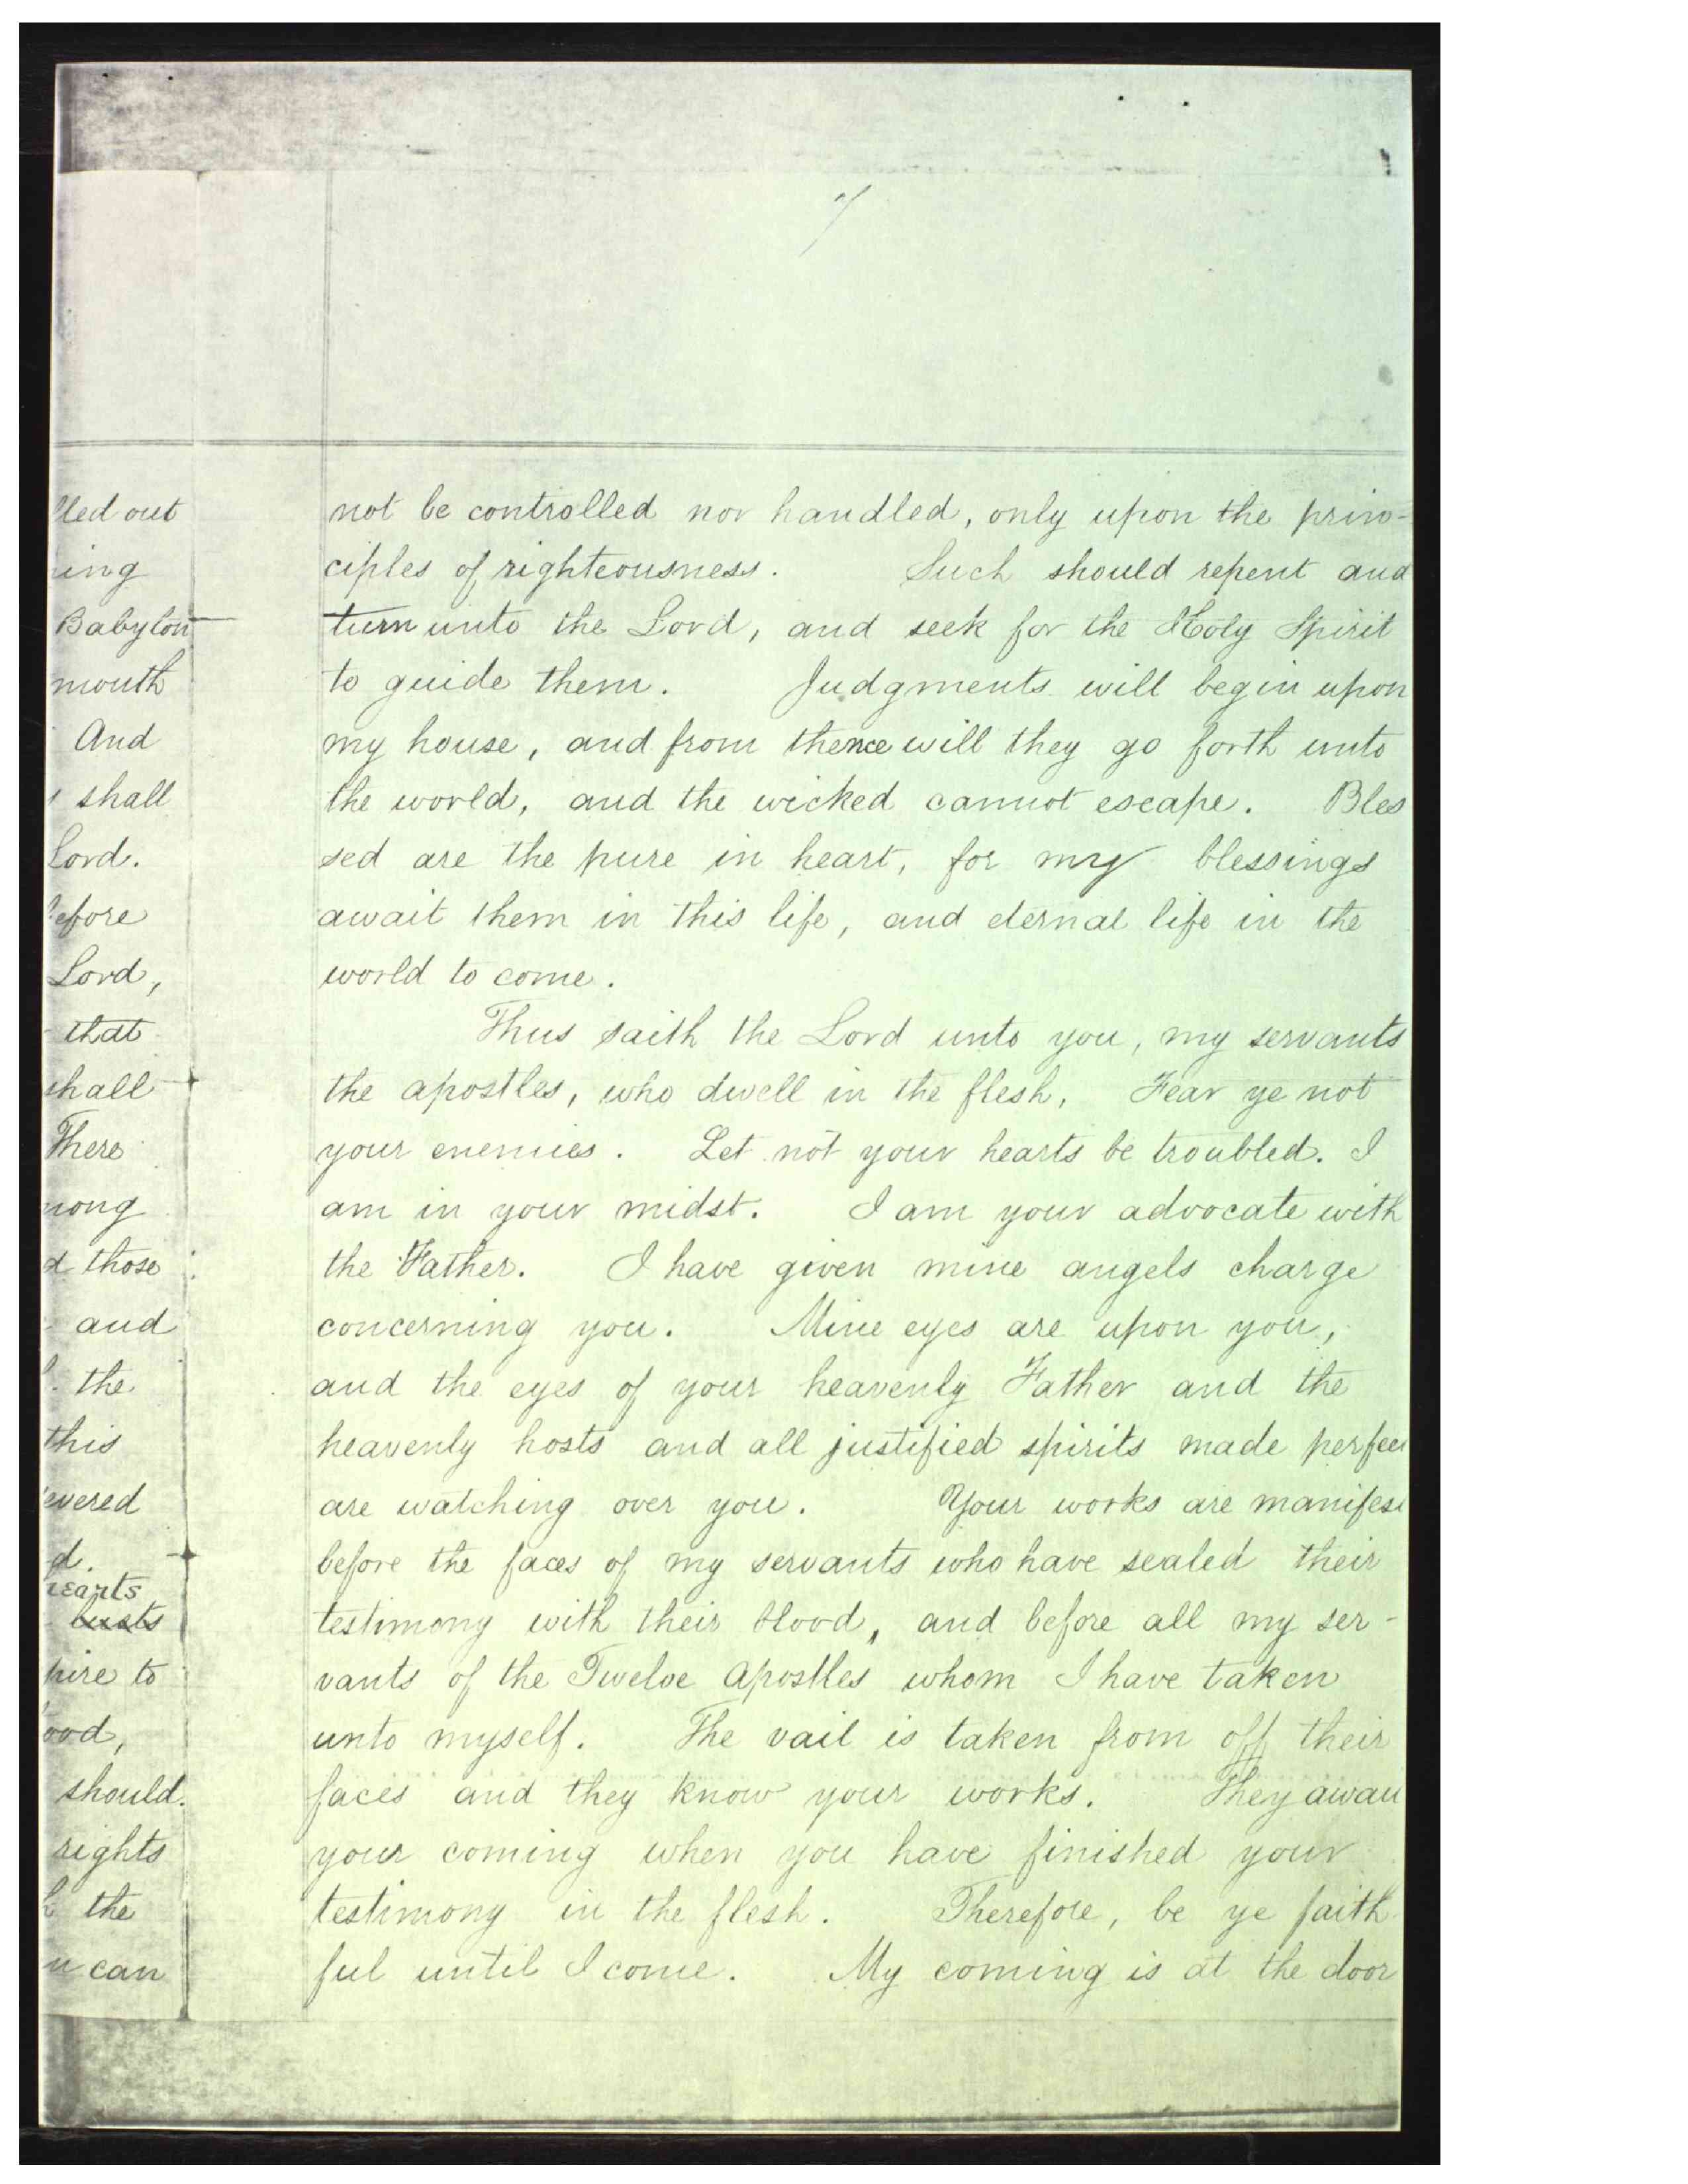 7
lled out
ing
Babylon
mouth
And
shall
Lord.
efore
Lord,
that
shall
There
mong
d those
and
the
this
evered
d.
hearts
lusts
pire to
ood,
should
rights
the
can
not be controlled nor handled, only upon the prin-
ciples of righteousness. Such should repent and
turn unto the Lord, and seek for the Holy Spirit
to guide them. Judgments will begin upon
my house, and from thence will they go forth unto
the world, and the wicked cannot escape. Bles
sed are the pure in heart, for my blessings
await them in this life, and eternal life in the
world to come.
Thus saith the Lord unto you, my servants
the apostles, who dwell in the flesh, Fear ye not
your enemies. Let not your hearts be troubled. I
am in your midst. I am your advocate with
the Father. I have given mine angels charge
concerning you. Mine eyes are upon you,
and the eyes of your heavenly Father and the
heavenly hosts and all justified spirits made perfec
are watching over you. Your works are manifes
before the faces of my servants who have sealed their
testimony with their blood, and before all my ser-
vants of the Twelve Apostles whom I have taken
unto myself. The vail is taken from off their
faces and they know your works. They awai
your coming when you have finished your
testimony in the flesh. Therefore, be ye faith
ful until I come. My coming is at the door